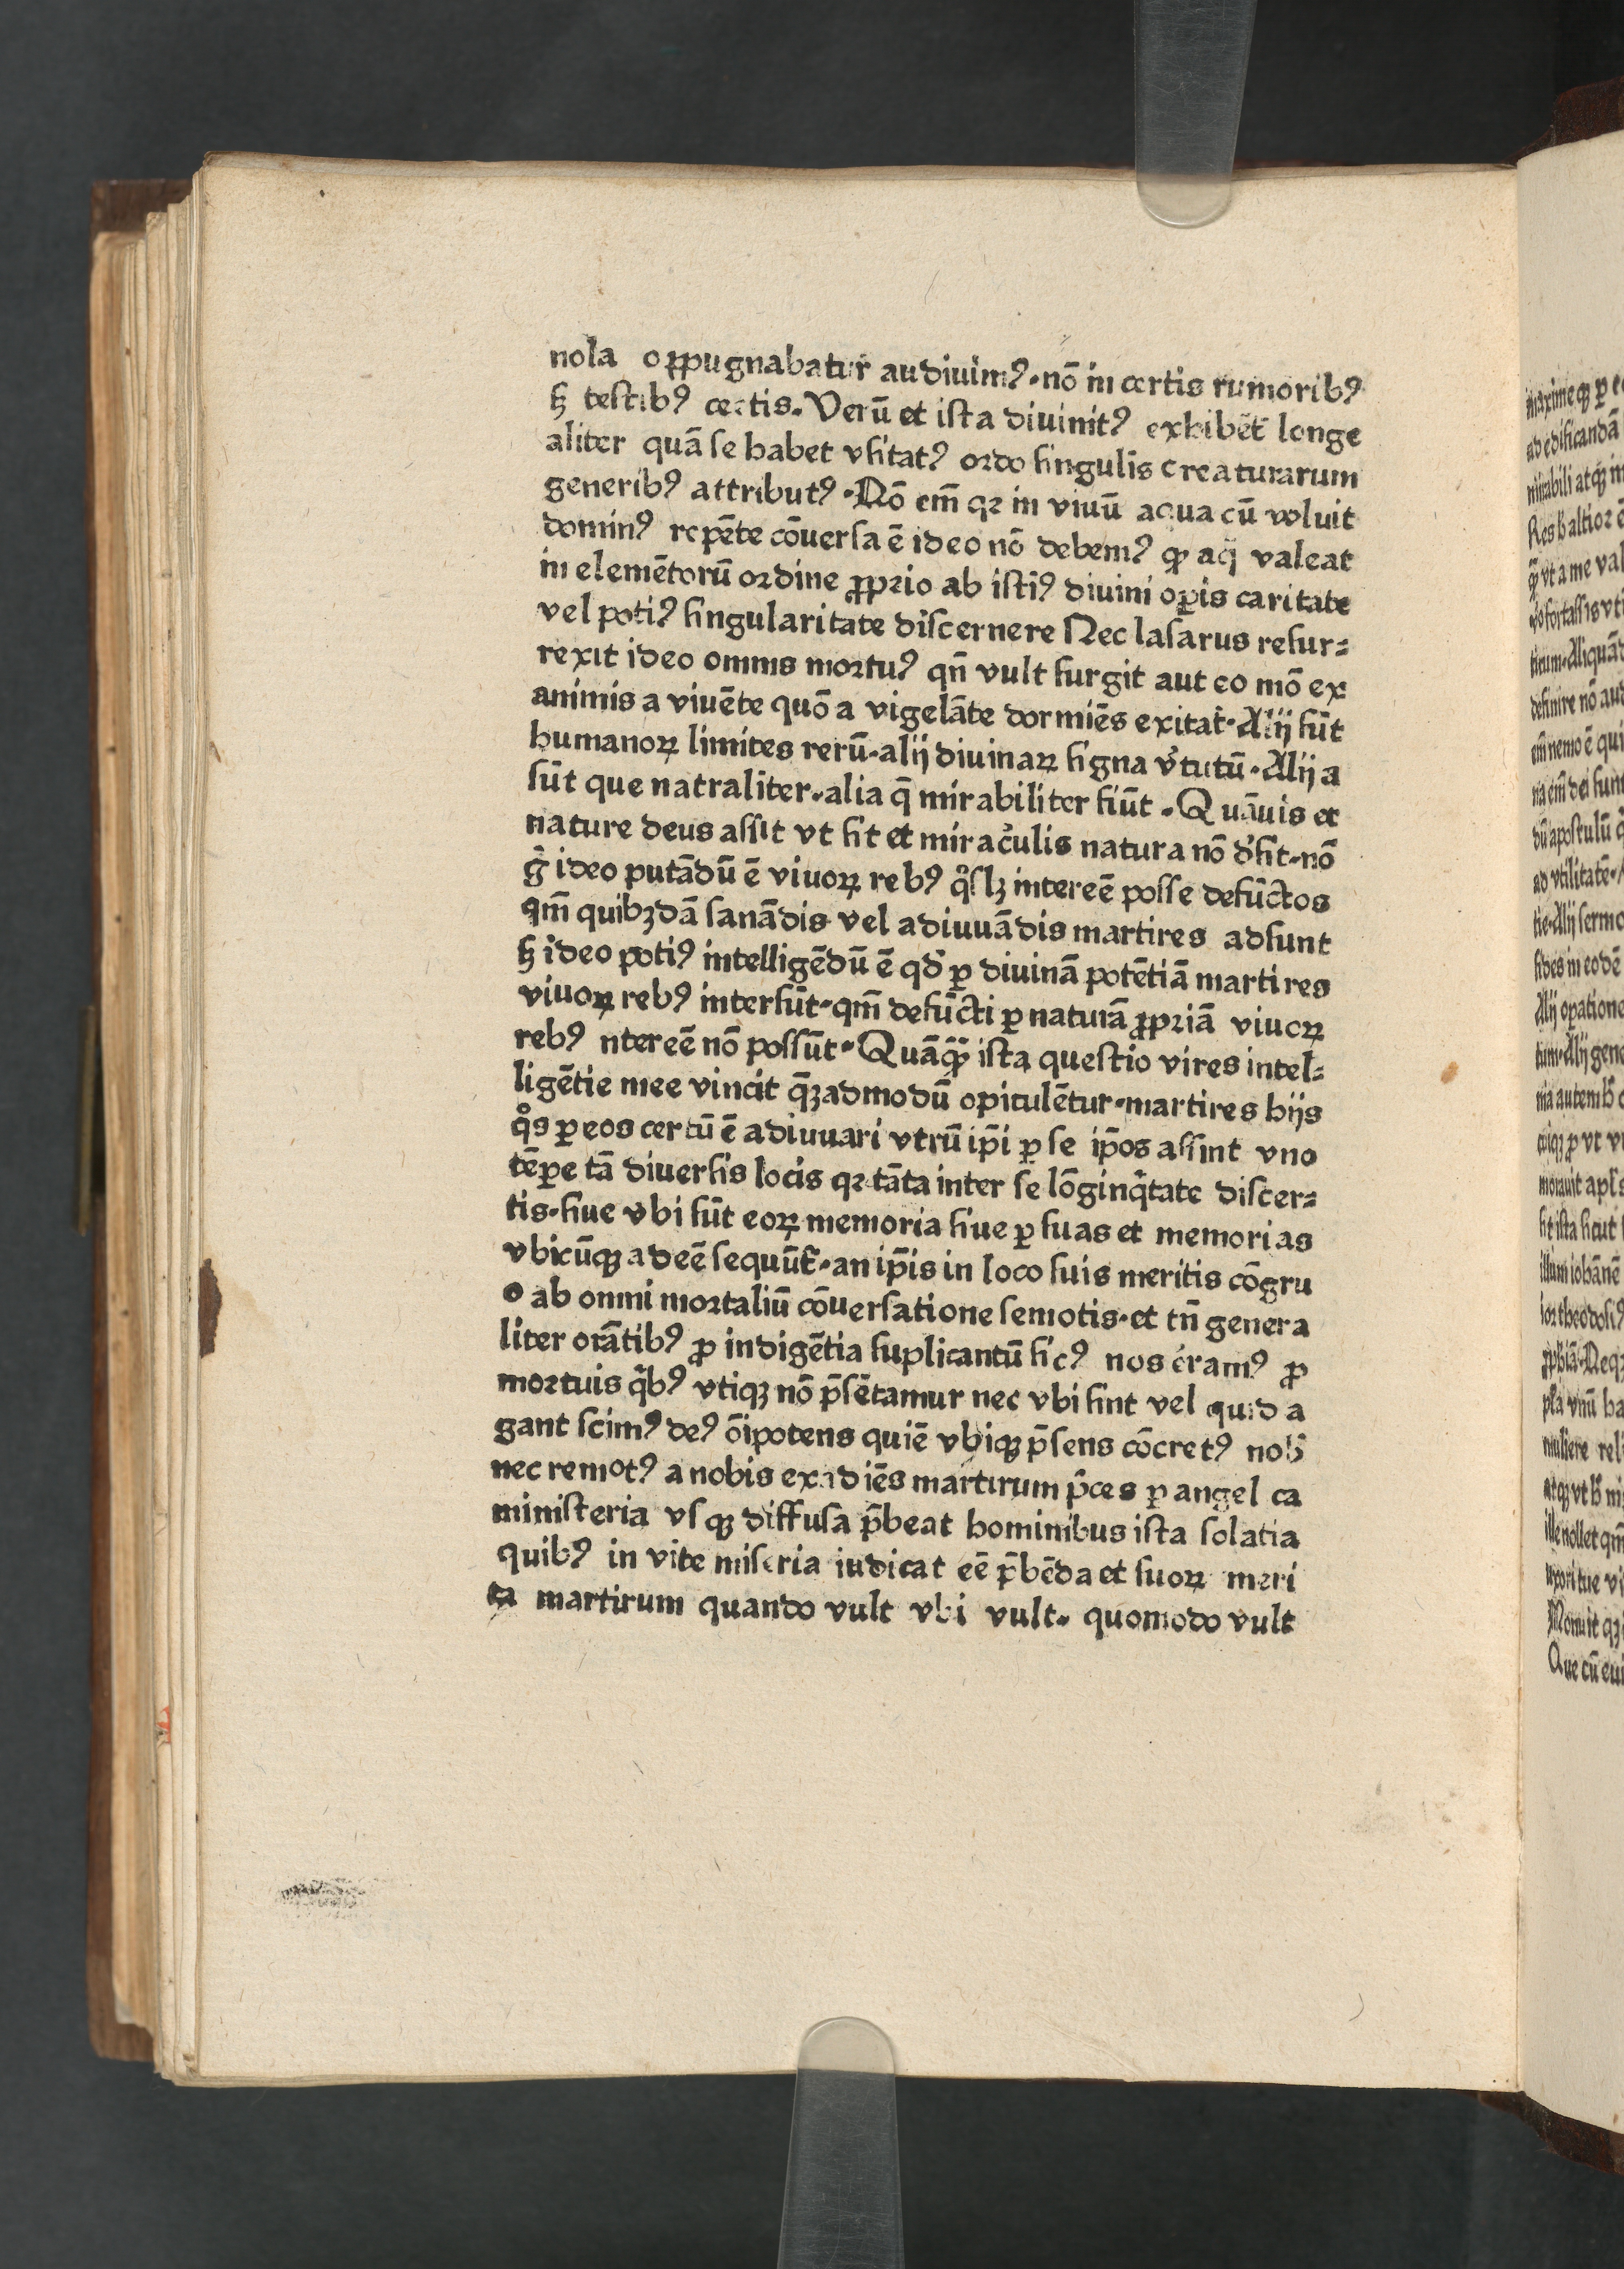 nola oꝓpugnabatur̄ audiuimꝰ.nō in certis rumoribꝰ
ꝸ testibꝰ certis.Verū et ista diuinitꝰ exhibēt longe
aliter quā se habet vsitatꝰ ordo singulis creaturarum
generibꝰ attributꝰ.Nō em̄ qꝛ in viuū aqua cū voluit
dominꝰ repēte cōuersa ē ideo nō debemꝰ ꝙ aq̈ valeat
in elemētorū ordine ꝓprio ab istiꝰ diuini oꝑis caritate
vel potiꝰ singularitate discernere Nec lasarus resur⸗
rexit ideo omnis mortuꝰ qn̄ vult surgit aut eo mō ex
animis a viuēte quō a vigelāte dormiēs exitat̄.Alij sūt
humanoꝝ limites rerū.alij diuinaꝝ signa v̓tutū.Alij a
sūt que natraliter.alia q̄ mirabiliter fiūt.Quāuis et
nature deus assit vt sit et miraculis natura nō d̓sit.nō
g̊ ideo putādū ē viuoꝝ rebꝰ qͦslꝫ intereē posse defūctos
qm̄ quibꝫdā sanādis vel adiuuādis martires adsunt
ꝸ ideo potiꝰ intelligēdū ē qd̓ ꝑ diuinā potētiā martires
viuoꝝ rebꝰ intersūt.qm̄ defūcti ꝑ naturā ꝓpriā viuoꝝ
rebꝰ ntereē nō possūt.Quāꝙ̄ ista questio vires intel⸗
ligētie mee vincit q̄ꝫadmodū opitulētur.martires hijs
qͦs ꝑ eos certū ē adiuuari vtrū ip̄i ꝑ se ip̄os assint vno
tēꝑe tā diuersis locis qꝛ tāta inter se lōginq̇tate discer⸗
tis.siue vbi sūt eoꝝ memoria siue ꝑ suas et memorias
vbicūqꝫ adeē sequūt̄.an ip̄is in loco suis meritis cōgru
o ab omni mortaliū cōuersatione semotis.et tn̄ genera
liter orātibꝰ ꝓ indigētia suplicantū sicꝰ nos oramꝰ ꝓ
mortuis q̇bꝰ vtiqꝫ nō p̄sētamur nec vbi sint vel quid a
gant scimꝰ deꝰ ōipotens quiē vbiqꝫ p̄sens cōcretꝰ nob̄
nec remotꝰ a nobis exadiēs martirum p̄ces ꝑ angel ca
ministeria vsqꝫ diffusa p̄beat hominibus ista solatia
quibꝰ in vite miseria iudicat eē p̄bēda et suoꝝ meri
ta martirum quando vult vbi vult. quomodo vult